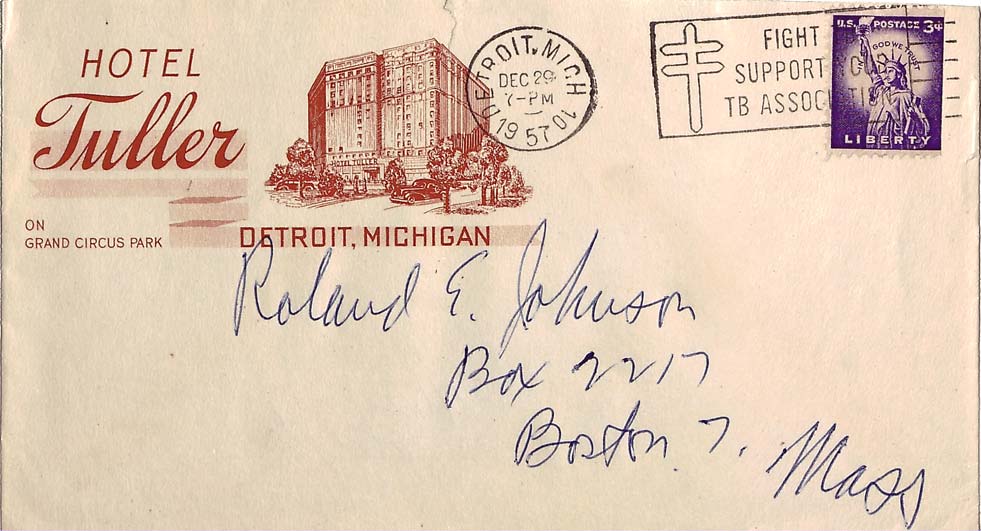 HOTEL
Tuller
ON
GRAND CIRCUS PARK
DETROIT, MICHIGAN
DETROIT, MICH
DEC 29
7-PM
1957
FIGHT
SUPPORT
TB ASSOCIATI
U.S. POSTAGE 3¢
IN GOD WE TRUST
LIBERTY
Roland E. Johnson
Box 2217
Boston 7. Mass